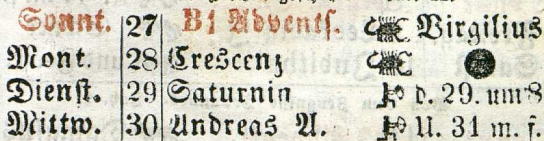 Sonnt. 27 B1 Advents. Virgilius
Mont. 28 Crescenz
Dienst. 29 Saturnin d. 29. um 8
Mittw. 30 Andreas A. U. 31 m. f.